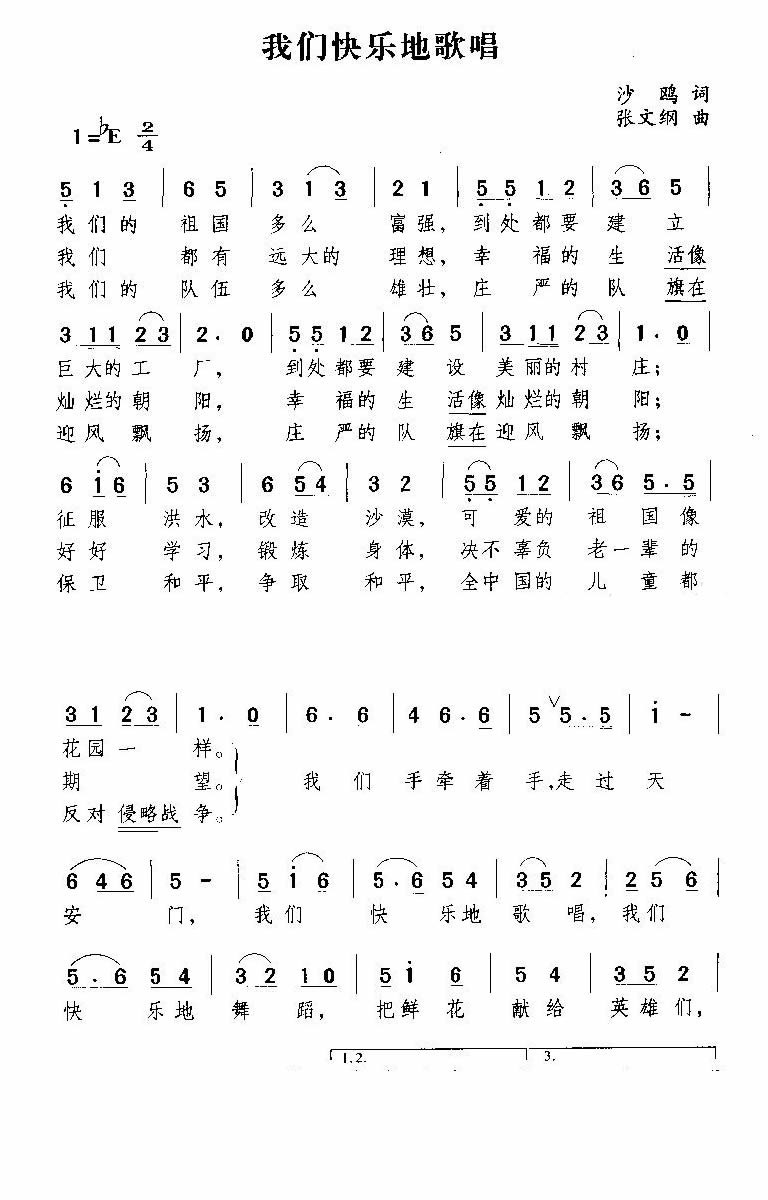 我们快乐地歌唱
沙鸥 词
张文纲 曲
1=♭E 2/4
5 1 3 | 6 5 | 3 1 3 | 2 1 | 5 5 1 2 | 3 6 5 |
我们的 祖国 多么 富强，到处都要 建立
我们 都有 远大的 理想，幸福的 生活像
我们的 队伍 多么 雄壮，庄严的 队旗在
3 1 1 2 3 | 2 · 0 | 5 5 1 2 | 3 6 5 | 3 1 1 2 3 | 1 · 0 |
巨大的工厂，到处都要 建设 美丽的村庄；
灿烂的朝阳，幸福的生 活像灿烂的朝阳；
迎风飘扬，庄严的队 旗在迎风飘扬；
6 i 6 | 5 3 | 6 5 4 | 3 2 | 5 5 1 2 | 3 6 5 · 5 |
征服 洪水，改造 沙漠，可爱的 祖国像
好好 学习，锻炼 身体，决不辜负 老一辈的
保卫 和平，争取 和平，全中国的 儿童都
3 1 2 3 | 1 · 0 | 6 · 6 | 4 6 · 6 | 5 ∨ 5 · 5 | i - |
花园一样。
期望。 我们手牵着手，走过天
反对侵略战争。
6 4 6 | 5 - | 5 i 6 | 5 · 6 5 4 | 3 5 2 | 2 5 6 |
安门，我们 快乐地歌唱，我们
5 · 6 5 4 | 3 2 1 0 | 5 i 6 | 5 4 | 3 5 2 |
快乐地舞蹈，把鲜花 献给 英雄们，
1.2. 3.